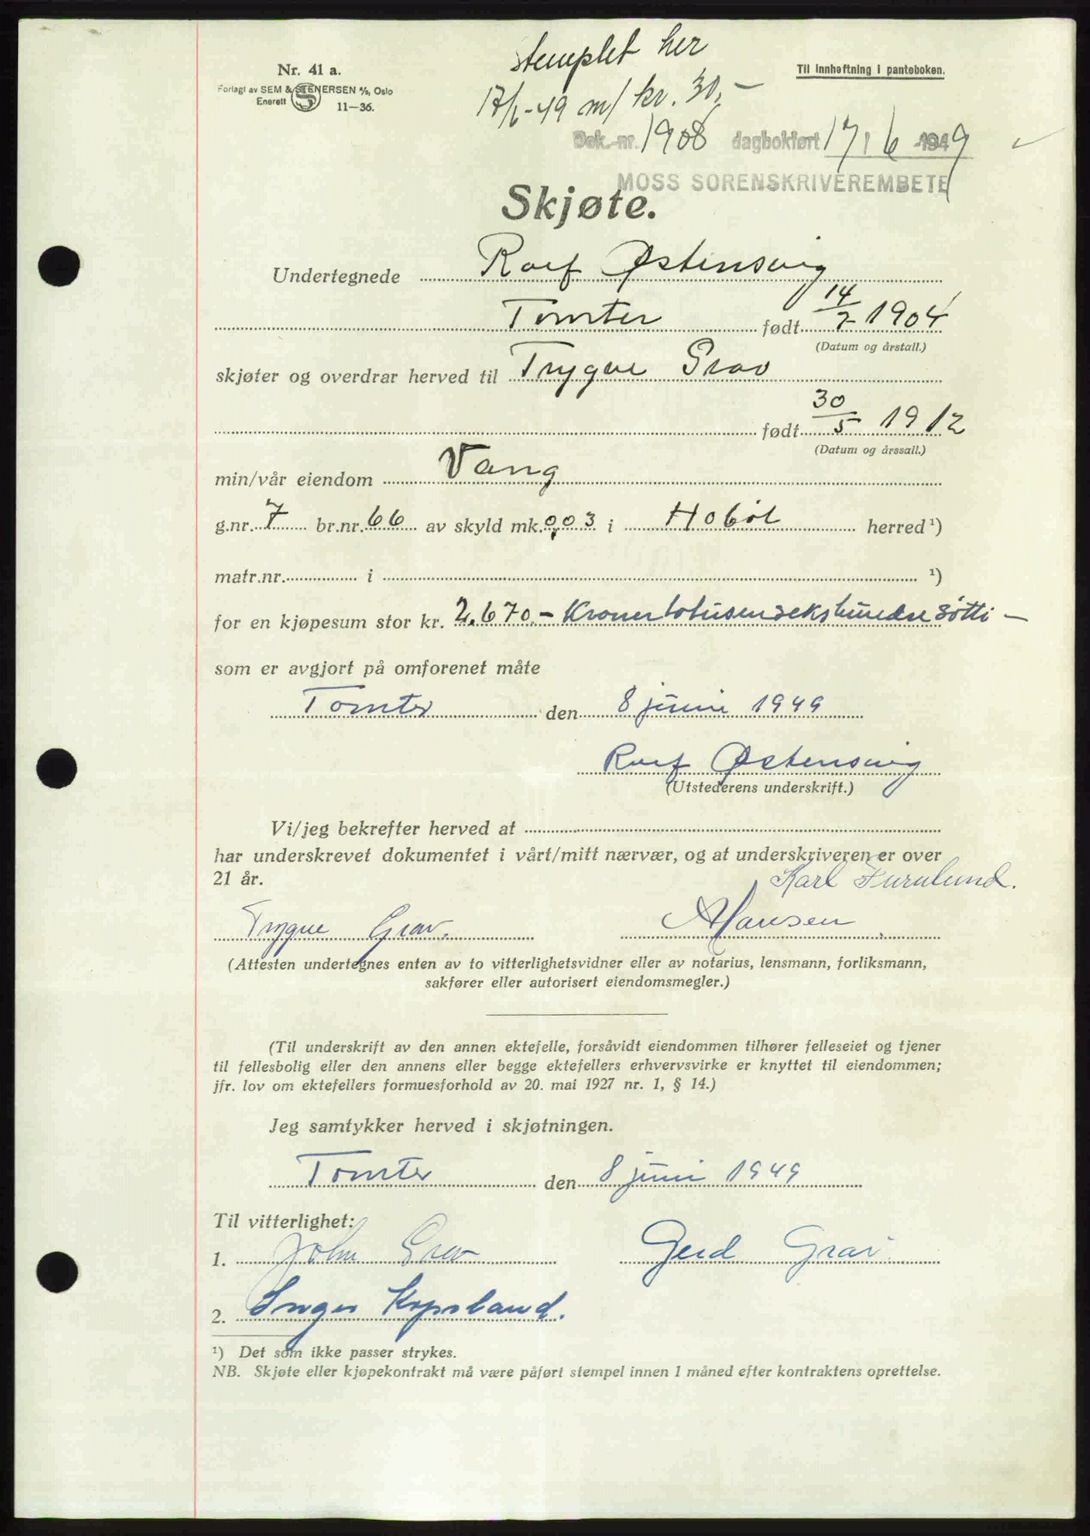 Nr. 41 a.
Forlagt av SEM & STENERSEN A/S, Oslo
Enerett S 11—36.
stemplet her
17/6-49 m/ kr. 30,-
Til innheftning i panteboken.
Dok.-nr. 1908 dagbokført 17/6 1949
MOSS SORENSKRIVEREMBETE
Skjøte.
Undertegnede Rolf Østensvig
Tomter født 14/7 1904
(Datum og årstall.)
skjøter og overdrar herved til Trygve Grav
født 30/5 1912
(Datum og årssall.)
min/vår eiendom Vang
g.nr. 7 br.nr. 66 av skyld mk. 0,03 i Hobøl herred ¹)
matr.nr. i ¹)
for en kjøpesum stor kr. 2.670.- Kroner totusensekshundresøtti -
som er avgjort på omforenet måte
Tomter den 8 juni 1949
Rolf Østensvig
(Utstederens underskrift.)
Vi/jeg bekrefter herved at
har underskrevet dokumentet i vårt/mitt nærvær, og at underskriveren er over
21 år. Karl Furulund.
Trygve Grav. A Hansen
(Attesten undertegnes enten av to vitterlighetsvidner eller av notarius, lensmann, forliksmann,
sakfører eller autorisert eiendomsmegler.)
(Til underskrift av den annen ektefelle, forsåvidt eiendommen tilhører felleseiet og tjener
til fellesbolig eller den annens eller begge ektefellers erhvervsvirke er knyttet til eiendommen;
jfr. lov om ektefellers formuesforhold av 20. mai 1927 nr. 1, § 14.)
Jeg samtykker herved i skjøtningen.
Tomter den 8 juni 1949
Til vitterlighet:
1. John Grav Gerd Grav
2. Inger Kopsland.
¹) Det som ikke passer strykes.
NB. Skjøte eller kjøpekontrakt må være påført stempel innen 1 måned efter kontraktens oprettelse.